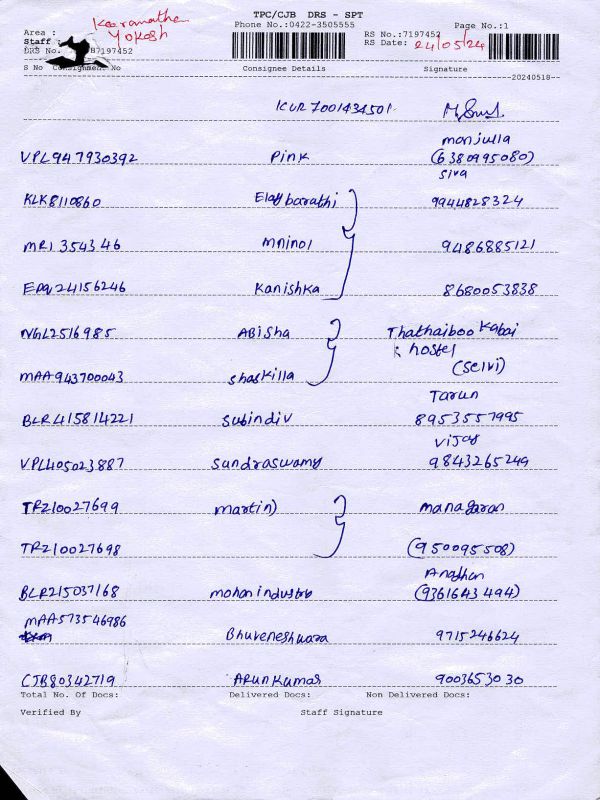 TPC/CJB DRS - SPT
Phone No.:0422-3505555 Page No.:1
Area : Karamathe
Staff : Yokesh
RS No.:7197452
RS Date: 24/05/24
DRS No. 7197452
S No Consignment No Consignee Details Signature
20240518
ICUR 7001434501
manjulla
VPL947930392 Pink (6380995080)
siva
KLK8110860 Elabarathi 9944828324
MR1354346 mnino1 9486885121
24156246 Kanishka 8680053838
NGL2516985 Abisha Thathaiboo Kabai
hostel
MAA943700043 shaskilla (Selvi)
Tarun
BLR415814221 Subindiv 8953557995
vijay
VPL405023887 Sundraswamy 9843265249
TRZ10027699 martin) managaran
TRZ10027698 (950095508)
BLR215037168 mohan industry (9361643494)
MAA573546986
Bhuveneshwara 9715246624
CJB80342719 Arunkumar 9003653030
Total No. Of Docs: Delivered Docs: Non Delivered Docs:
Verified By Staff Signature